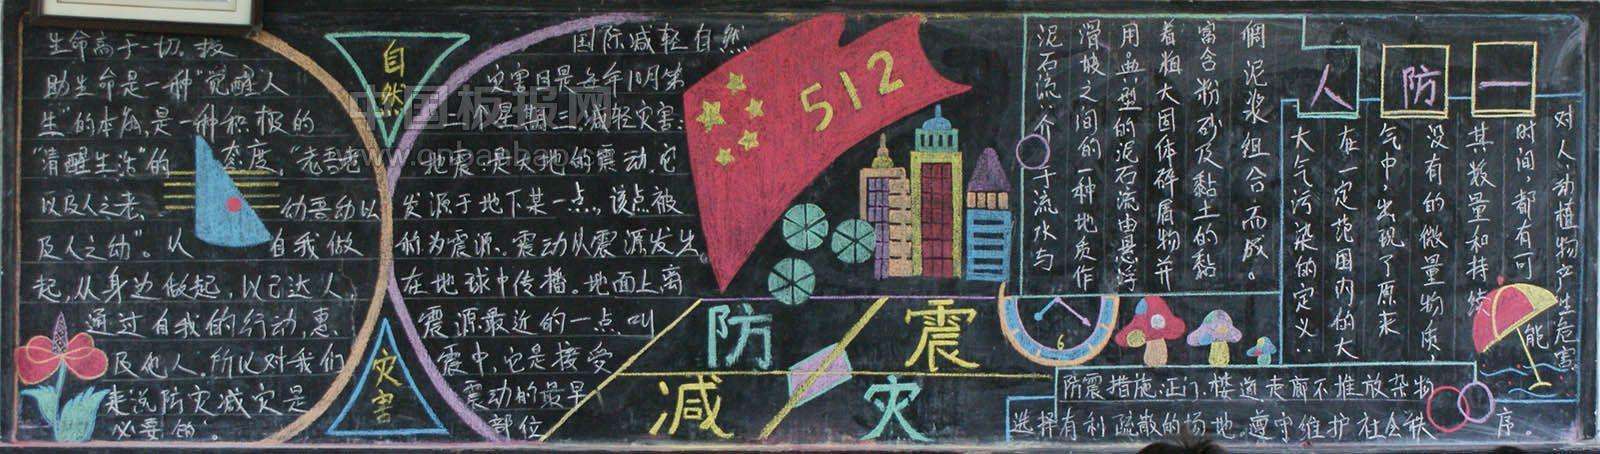 生命高于一切。援
助生命是一种"觉醒人
生"的本质,是一种积极的
"清醒生活"的态度。"老吾老
以及人之老、幼吾幼以
及人之幼"。从自我做
起,从身边做起,以己达人,
通过自我的行动,惠
及他人。所以对我们
来说防灾减灾是
必要的。
自然
灾害
国际减轻自然
灾害日是每年10月第
二个星期三,减轻灾害:
地震:是大地的震动,它
发源于地下某一点,该点被
称为震源。震动从震源发生
在地球中传播。地面上离
震源最近的一点叫
震中,它是接受
震动的最早
部位
512
防震
减灾
一防人
对人动植物产生危害
时间,都有可能
其数量和持续
没有的微量物质,
气中,出现了原来
在一定范围内的大
大气污染的定义:
倜泥浆组合而成。
富含粉砂及黏土的黏
着粗大固体碎屑物并
用典型的泥石流由悬浮
滑坡之间的一种地质作
泥石流介于流水与
防震措施:正门、楼道走廊不堆放杂物
选择有利疏散的场地。遵守维护社会秩序。
6
中国板报网
www.cnbanbao.cn